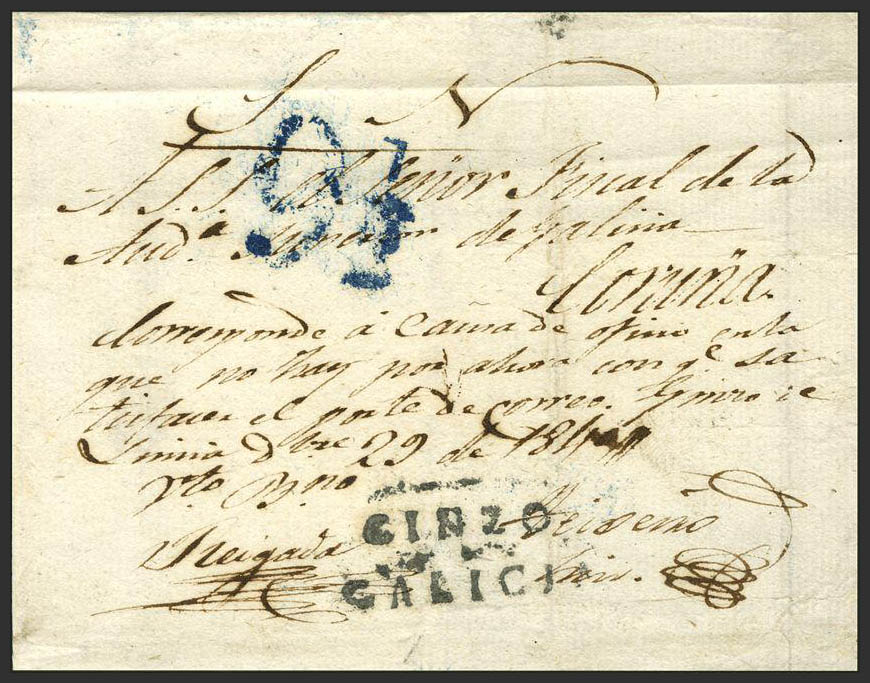 S N
A S. Sª el Señor Fiscal de la
Audª de Galicia
Coruña
91
Corresponde á Causa de oficio en la
que no hay por ahora con qe sa
tisfacer el porte de correo. Ginzo de
Limia Dbre 29 de 184
Vto Bno
GINZO
Reigada
GALICIA